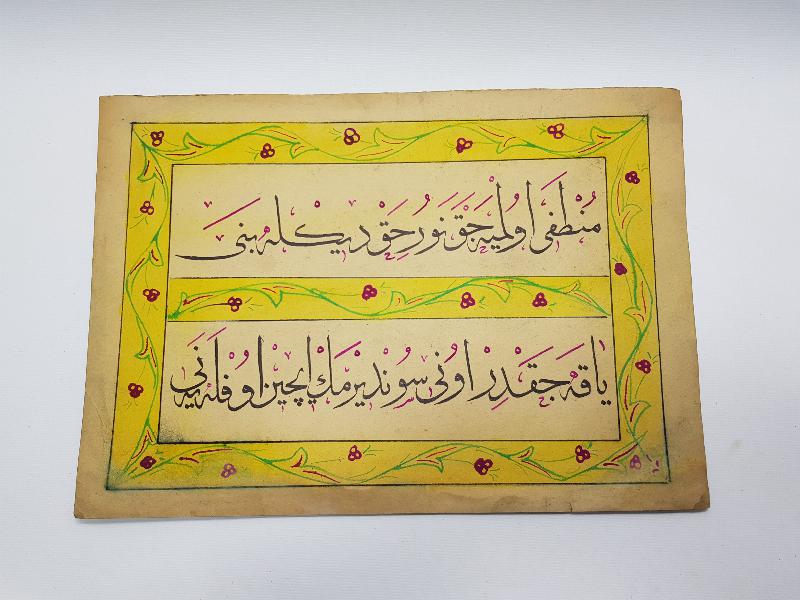 منطفی اولمیه جق نور حق دیكله بنی
یاقه جقدر اونی سوندیرمك ایچین اوفله یه نی